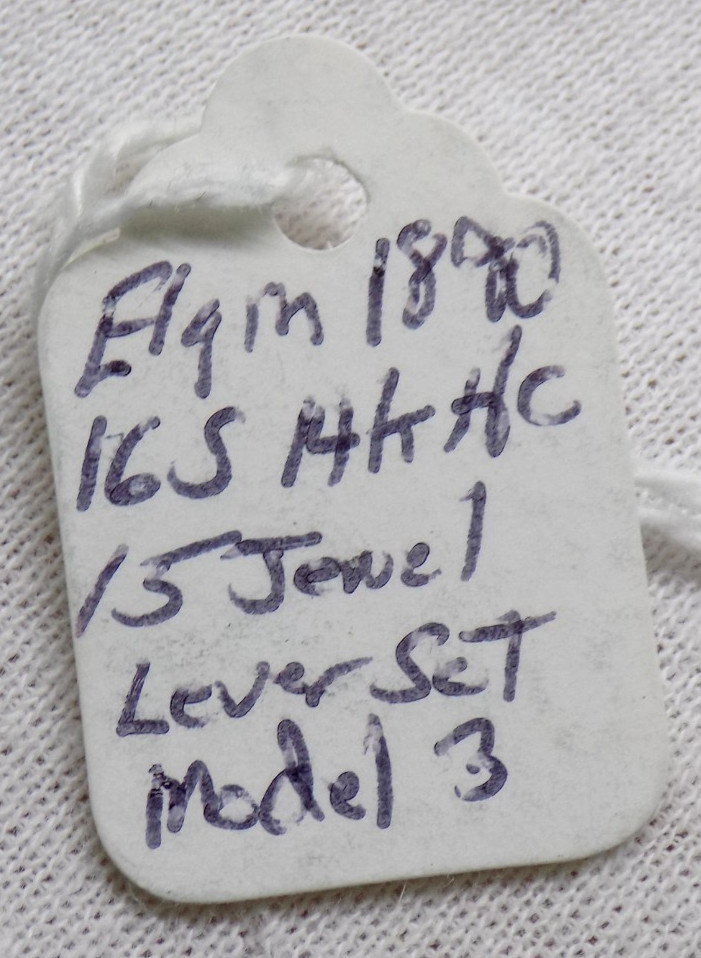 Elgin 1890
16S 14K H/C
15 Jewel
Lever SeT
Model 3